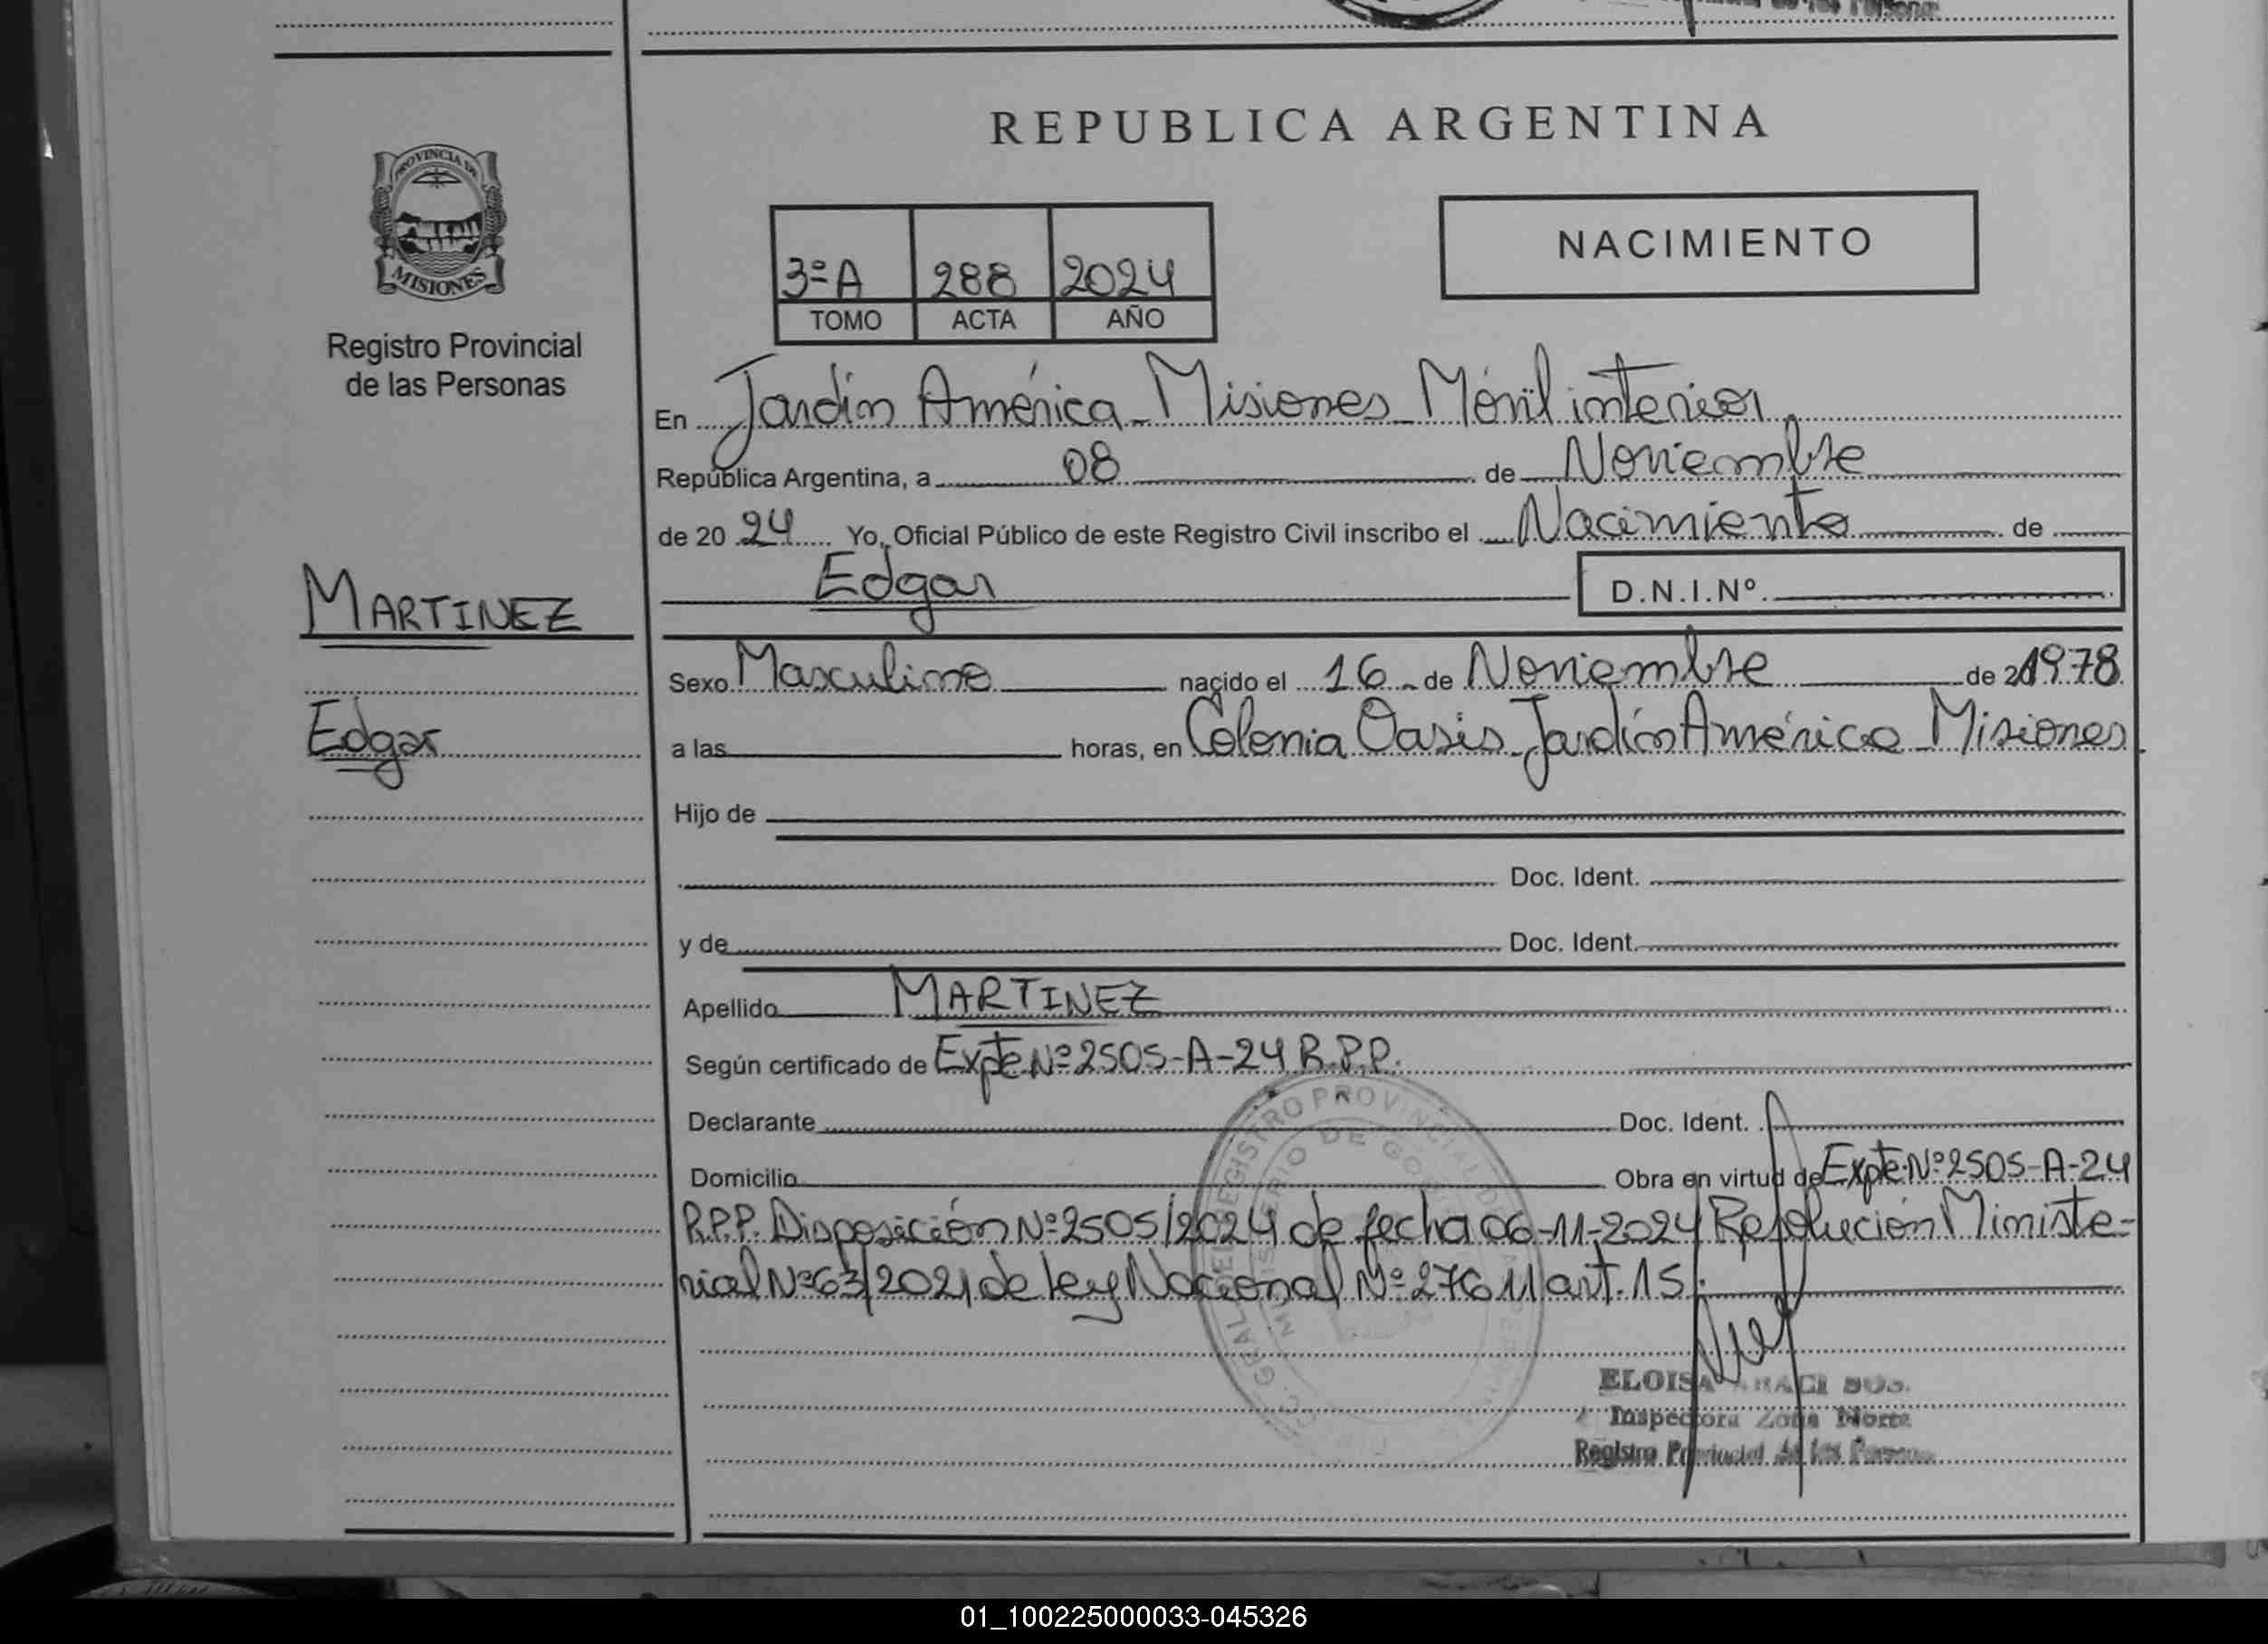 REPUBLICA ARGENTINA
PROVINCIA DE
MISIONES
Registro Provincial
de las Personas
3º A 288 2024
TOMO ACTA AÑO
NACIMIENTO
En Jardín América - Misiones - Móvil interior
República Argentina, a 08 de Noviembre
de 20 24 Yo, Oficial Público de este Registro Civil inscribo el Nacimiento de
Edgar D.N.I.Nº
MARTINEZ
Edgar
Sexo Masculino nacido el 16 de Noviembre de 1978
a las horas, en Colonia Oasis - Jardín América - Misiones
Hijo de
Doc. Ident.
y de Doc. Ident.
Apellido MARTINEZ
Según certificado de Expte Nº 2505-A-24 R.P.P.
Declarante Doc. Ident.
Domicilio Obra en virtud de Expte. Nº 2505-A-24
R.P.P. Disposición Nº 2505/2024 de fecha 06-11-2024 Resolución Ministe-
rial Nº 63/2021 de Ley Nacional Nº 27611 art. 15.
REGISTRO PROVINCIAL DE
ELOISA
Inspectora Zona Norte
Registro Provincial de las Personas
01_100225000033-045326